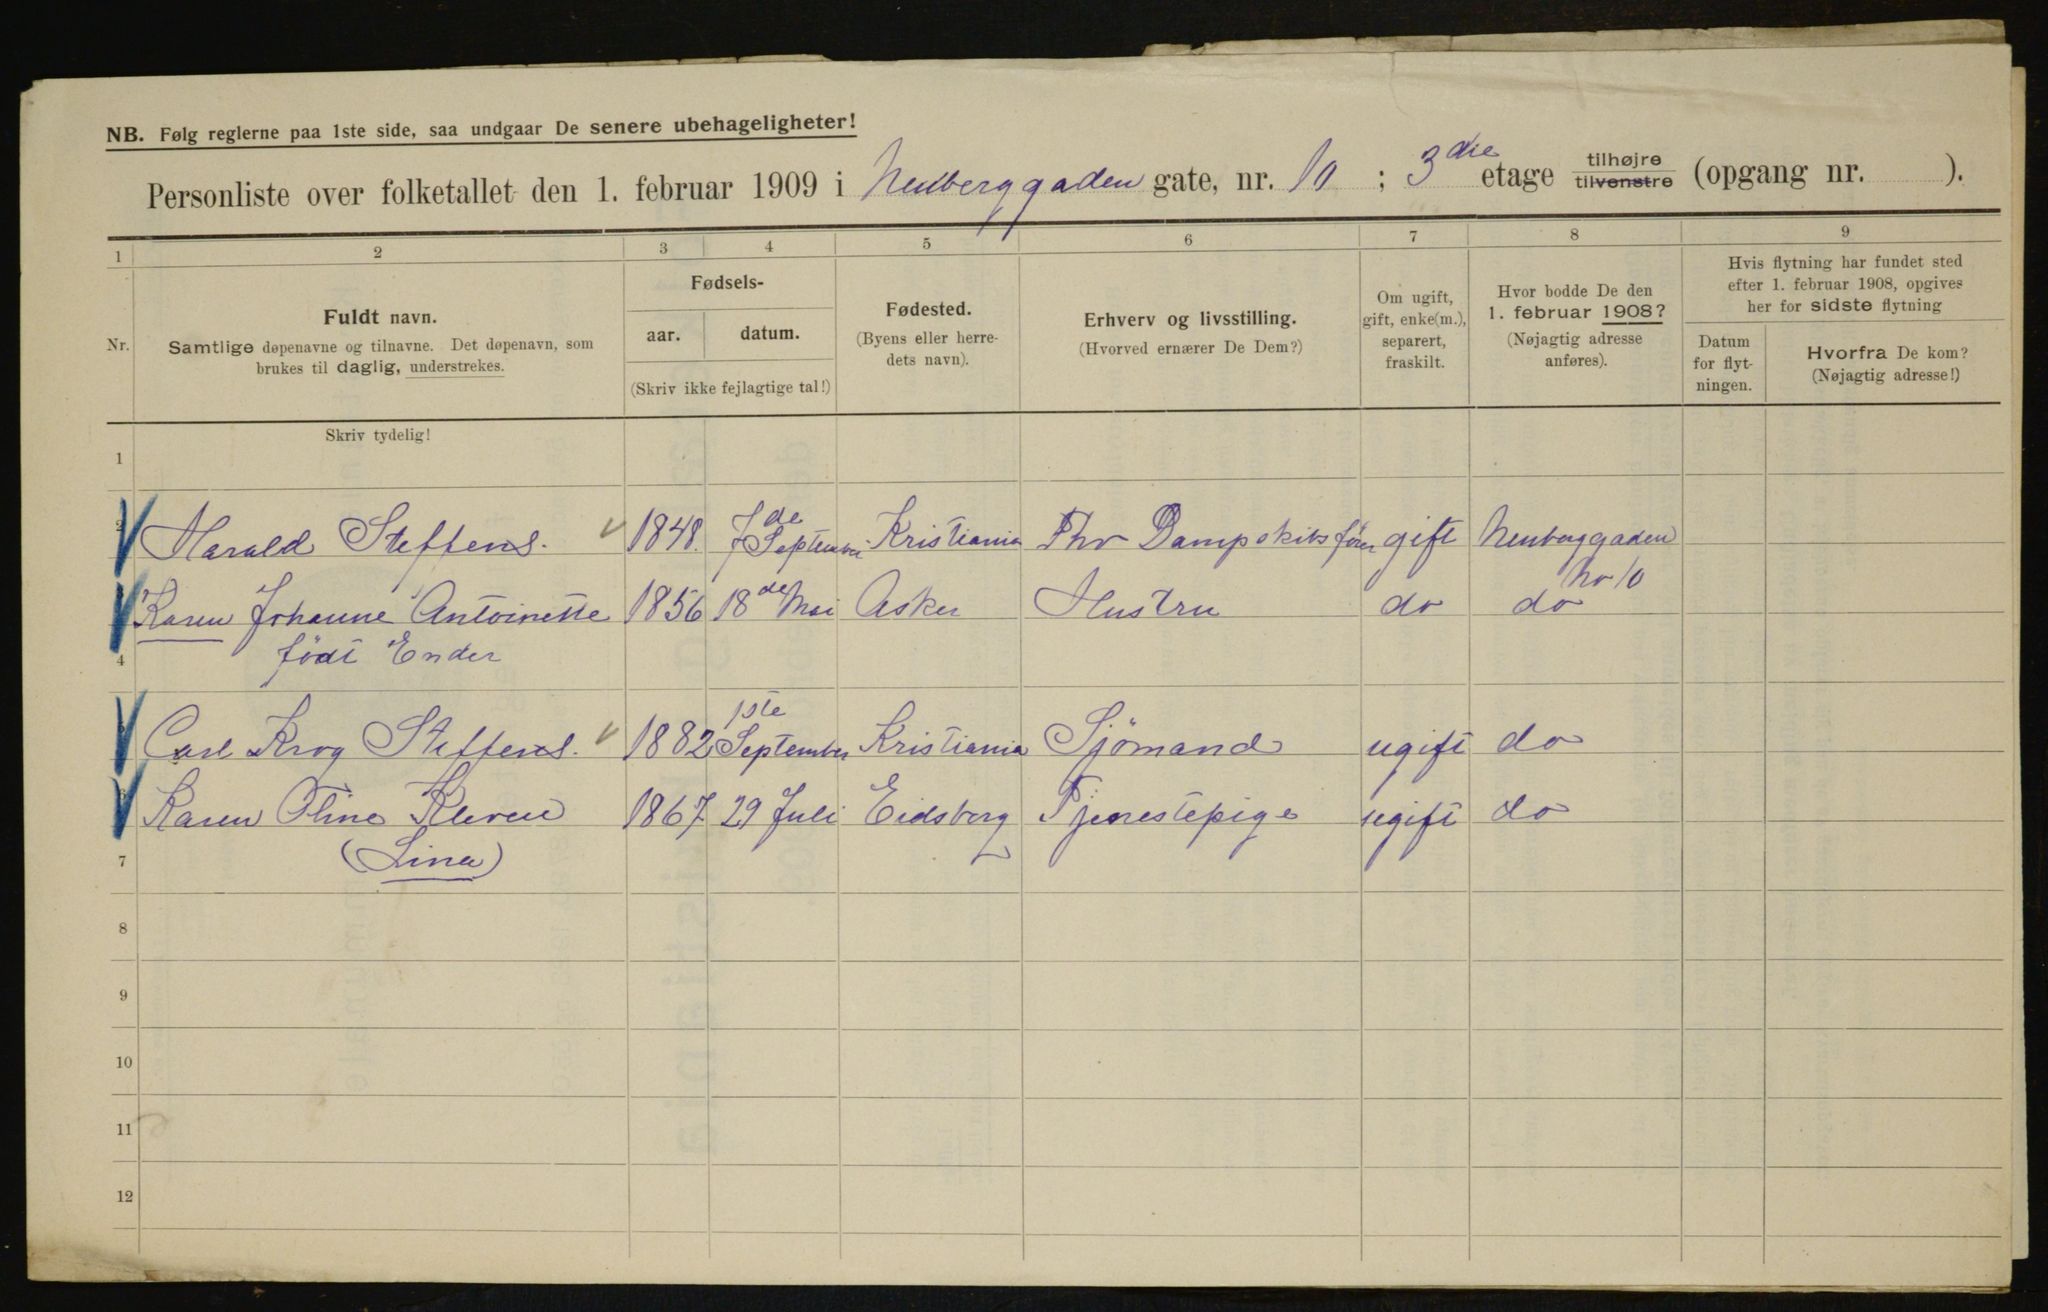 NB. Følg reglerne paa 1ste side, saa undgaar De senere ubehageligheter!
Personliste over folketallet den 1. februar 1909 i Neuberggaden gate, nr. 10 ; 3die etage tilhøjre tilvenstre (opgang nr. ).
1 2 3 4 5 6 7 8 9
Nr.
Fuldt navn.
Samtlige døpenavne og tilnavne. Det døpenavn, som
brukes til daglig, understrekes.
Fødsels-
aar. datum.
(Skriv ikke fejlagtige tal!)
Fødested.
(Byens eller herre-
dets navn).
Erhverv og livsstilling.
(Hvorved ernærer De Dem?)
Om ugift,
gift, enke(m.),
separert,
fraskilt.
Hvor bodde De den
1. februar 1908?
(Nøjagtig adresse
anføres).
Hvis flytning har fundet sted
efter 1. februar 1908, opgives
her for sidste flytning
Datum
for flyt-
ningen.
Hvorfra De kom?
(Nøjagtig adresse!)
Skriv tydelig!
1
2 Harald Steffens. 1848. 7de September Kristiania Fhv Dampskibsfører gift Neuberggaden No 10
3 Karen Johanne Antoinette 1856 18de Mai Asker Hustru do do
4 født Ender
5 Carl Krog Steffens. 1882 1ste September Kristiania Sjömand ugift do
6 Karen Oline Kleven 1867 29 Juli Eidsborg Tjenestepige ugift do
7 (Lina)
8
9
10
11
12